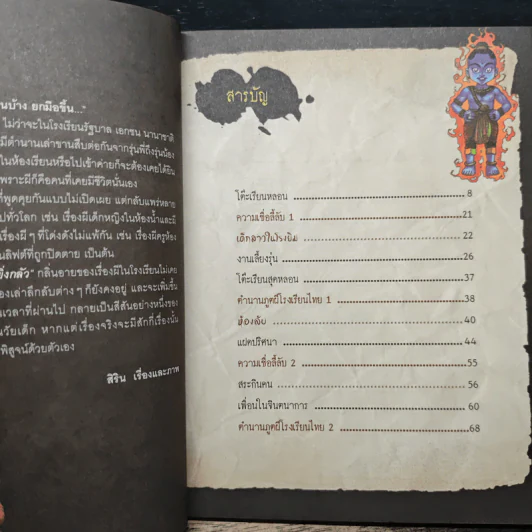 นบ้าง ยกมือขึ้น..."
ไม่ว่าจะในโรงเรียนรัฐบาล เอกชน นานาชาติ
มีตำนานเล่าขานสืบต่อกันจากรุ่นพี่ถึงรุ่นน้อง
ในห้องเรียนหรือไปเข้าค่ายก็จะต้องเคยได้ยิน
เพราะผีก็คือคนที่เคยมีชีวิตนั่นเอง
ที่พูดคุยกันแบบไม่เปิดเผย แต่กลับแพร่หลาย
ปทั่วโลก เช่น เรื่องผีเด็กหญิงในห้องน้ำและผี
เรื่องผีๆ ที่โด่งดังไม่แพ้กัน เช่น เรื่องผีครูห้อง
นลิฟต์ที่ถูกปิดตาย เป็นต้น
ยิ่งกลัว" กลิ่นอายของเรื่องผีในโรงเรียนไม่เคย
องเล่าลึกลับต่างๆ ก็ยังคงอยู่ และจะเพิ่มขึ้น
นเวลาที่ผ่านไป กลายเป็นสีสันอย่างหนึ่งของ
นวัยเด็ก หากแต่เรื่องจริงจะมีสักกี่เรื่องนั้น
พิสูจน์ด้วยตัวเอง
สิริน เรื่องและภาพ
สารบัญ
โต๊ะเรียนหลอน 8
ความเชื่อลี้ลับ 1 21
เด็กสาวในโรงยิม 22
งานเลี้ยงรุ่น 26
โต๊ะเรียนสุดหลอน 37
ตำนานภูตผีโรงเรียนไทย 1 38
ห้องลับ 40
แฝดปริศนา 44
ความเชื่อลี้ลับ 2 55
สระกินคน 56
เพื่อนในจินตนาการ 60
ตำนานภูตผีโรงเรียนไทย 2 68